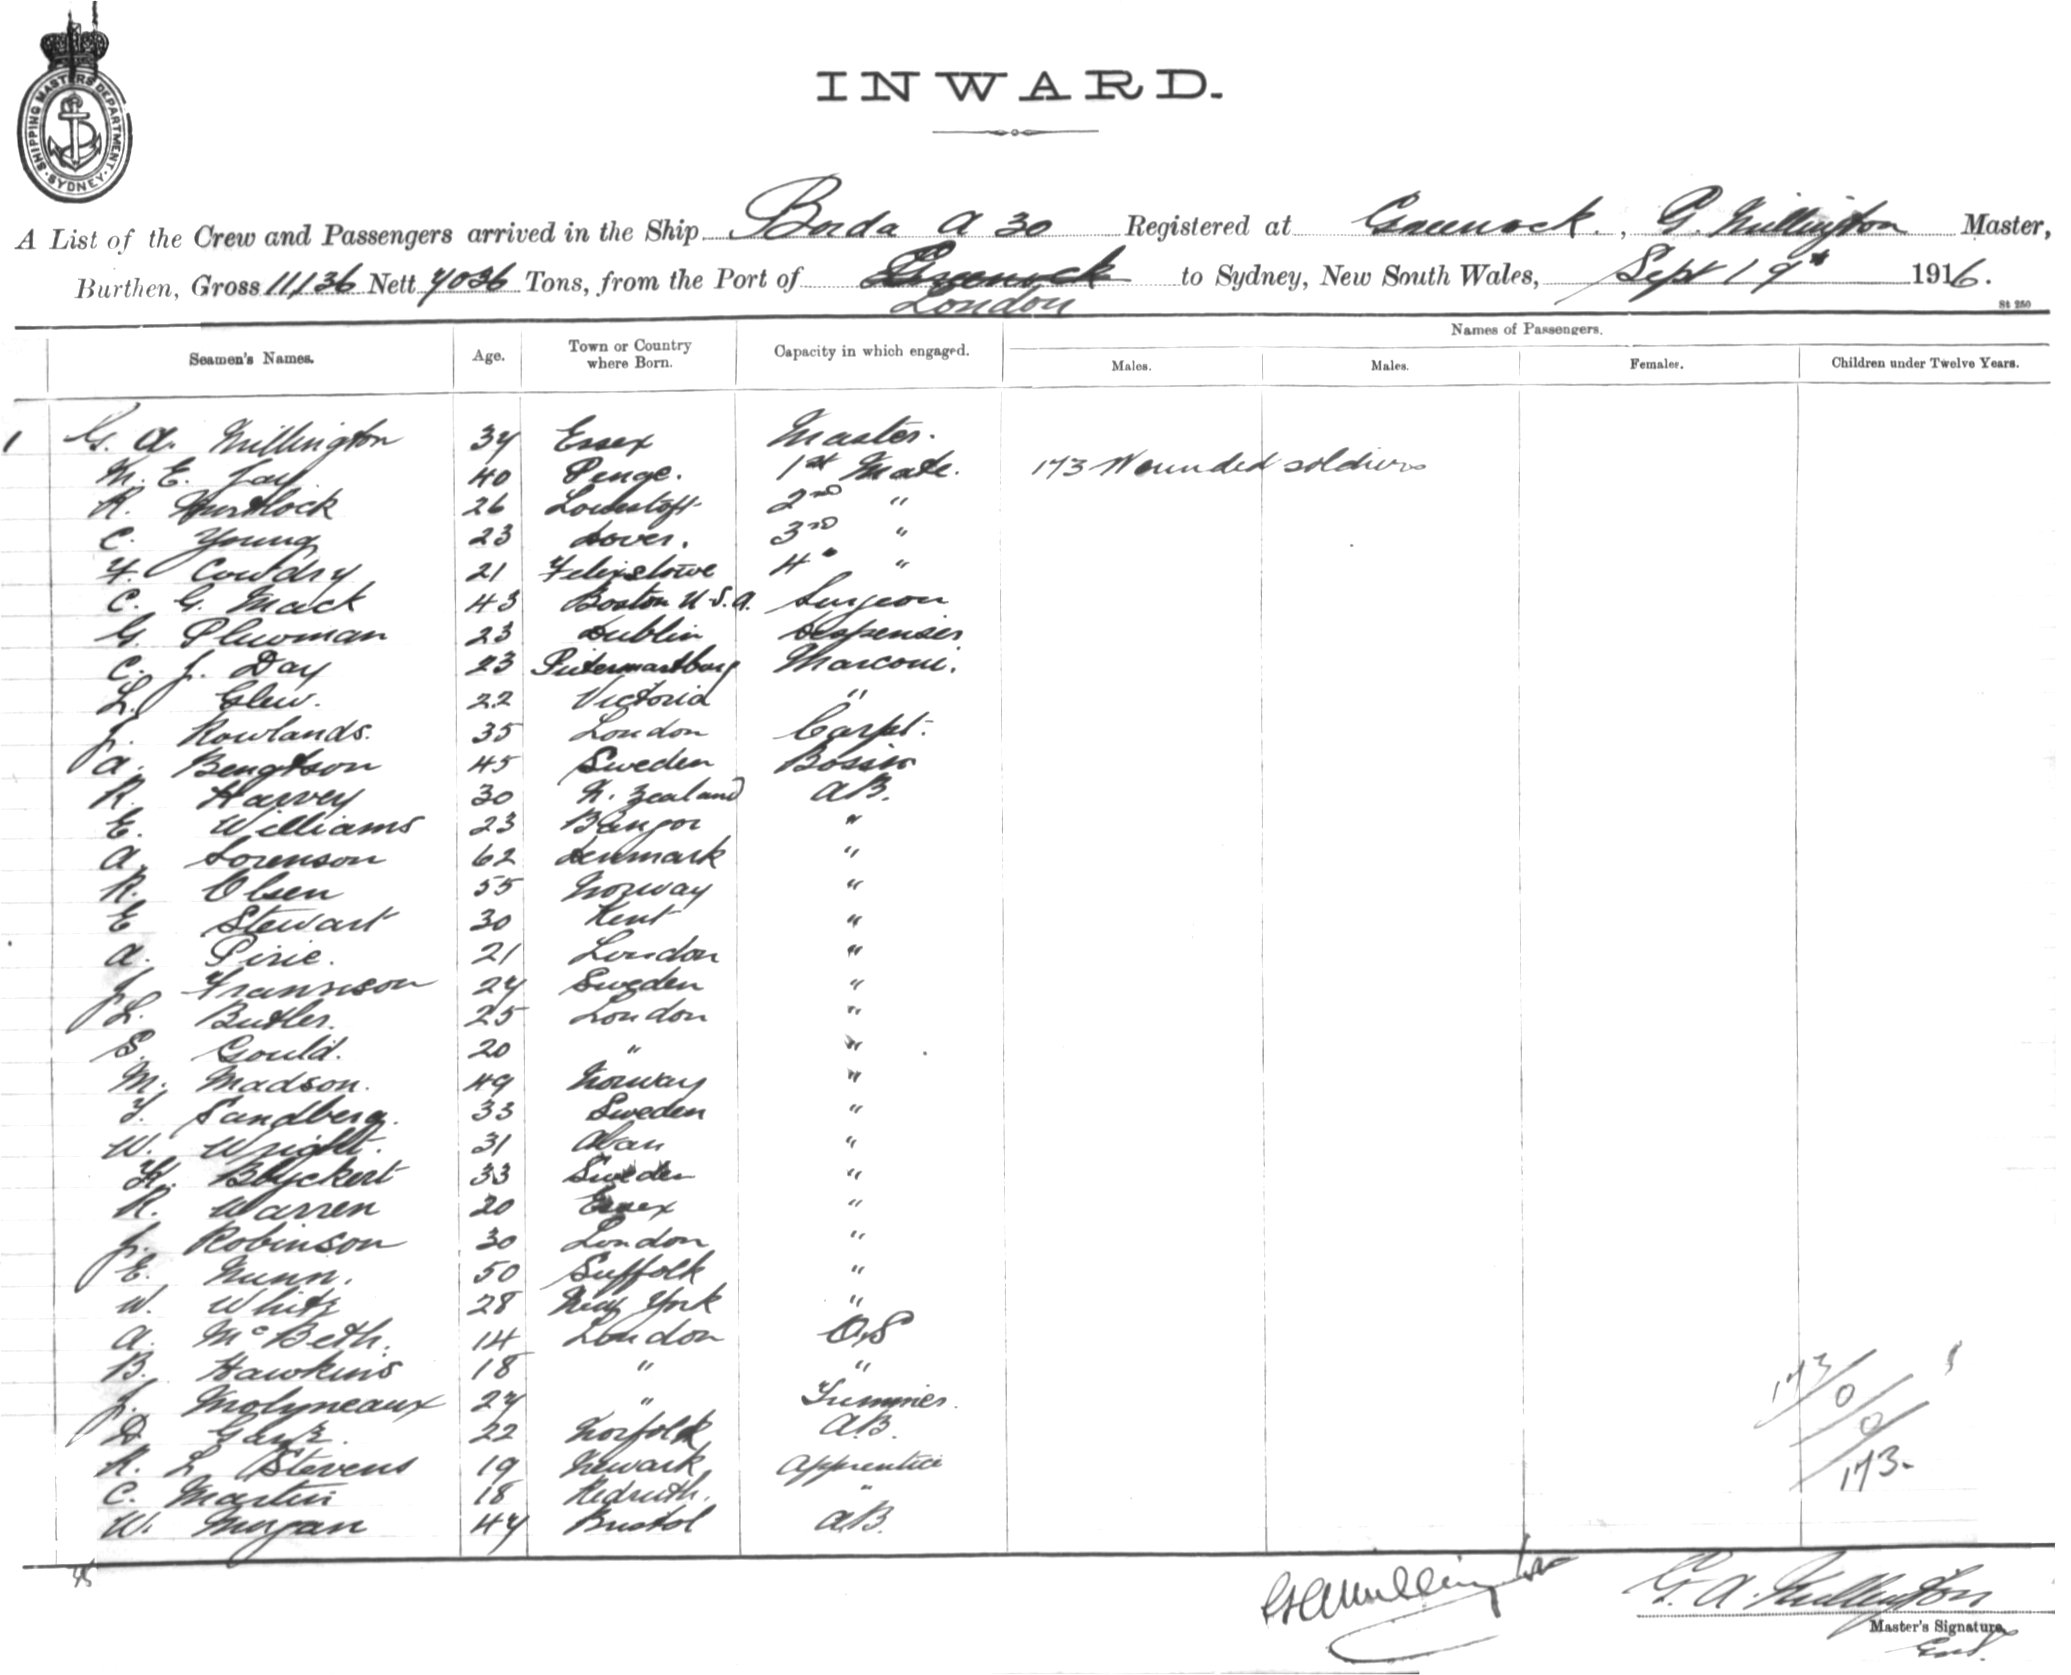 SHIPPING MASTERS DEPARTMENT. SYDNEY.
INWARD.
A List of the Crew and Passengers arrived in the Ship Borda A 30 Registered at Greenock, G. Millington Master,
Burthen, Gross 11136 Nett 7036 Tons, from the Port of Greenock to Sydney, New South Wales, Sept 19th 1916.
London
St 250
Names of Passengers.
Seamen's Names. Age. Town or Country where Born. Capacity in which engaged. Males. Males. Females. Children under Twelve Years.
1 G. A. Millington 37 Essex Master.
M. E. Jay 40 Penge. 1st Mate. 173 Wounded soldiers
R. Hurtlock 26 Lowestoft 2nd "
C. Young 23 Dover. 3rd "
F. Cowdry 21 Felixstowe 4th "
C. G. Mack 43 Boston U.S.A. Surgeon
G. Plowman 23 Dublin Dispenser
C. J. Day 23 Pietermaritzburg Marconi.
L. Glew. 22 Victoria "
J. Rowlands. 35 London Carpt.
A. Bengtson 45 Sweden Bosun
R. Harvey 30 N. Zealand AB.
E. Williams 23 Bangor "
A. Sorenson 62 Denmark "
R. Olsen 55 Norway "
E Stewart 30 Kent "
A. Pirie. 21 London "
J. 27 Sweden "
L. Butler. 25 London "
S. Gould. 20 " "
M. Madson. 49 Norway "
Sandberg. 33 Sweden "
W. Wright. 31 "
H. Blyckert 33 Sweden "
R. Warren 20 Essex "
J. Robinson 30 London "
E. Nunn. 50 Suffolk "
W. White 28 New York "
A. McBeth. 14 London O.S
B. Hawkins 18 " "
J. Molyneaux 27 " Trimmer.
D 22 Norfolk A.B.
R. L Stevens 19 Newark Apprentice
C. Martin 18 Redruth. "
W. Morgan 47 Bristol A.B.
173/
0/
0/
173.
G A Millington
G. A. Millington
Master's Signature